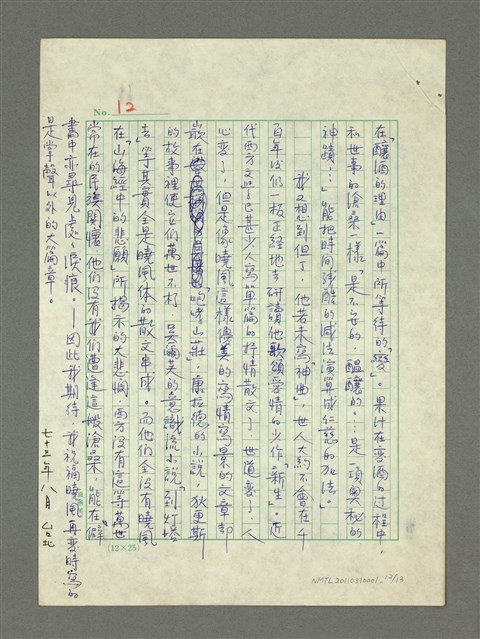 No. 12
在「釀酒的理由」一篇中所等待的「變」。果汁在變酒的过程中,
和世事的滄桑一樣「是不安的,醞釀的。…是一項奧秘的
神蹟…」能把時间殘酷的减法演算成仁慈的加法。
我又想到但丁,他若未寫「神曲」,世人大約不會在千
百年後仍一板正經地去研讀他歌頌愛情的少作「新生」。近
代西方文學已甚少人寫單篇的抒情散文了。世道變了,人
心變了,但是像曉風這樣優美的寫情寫景的文章却
嵌在「咆哮山莊」,康拉德的小說,狄更斯
的故事裡使它們萬世不朽。吳爾芙的意識流小說「到灯塔
去」等其實全是曉風体的散文串成。而他們全没有曉風
在「山海經中的悲願」所揭示的大悲憫,西方没有這等萬世
常在的民族関懷,他们没有我们遭逢這般滄桑,能在僻
書中亦尋見處處淚痕。—因此我期待,我祝福曉風再变時寫的
是掌聲以外的大篇章。
七十三年八月 台北
(12×25)
NMTL20110310001, 12/13